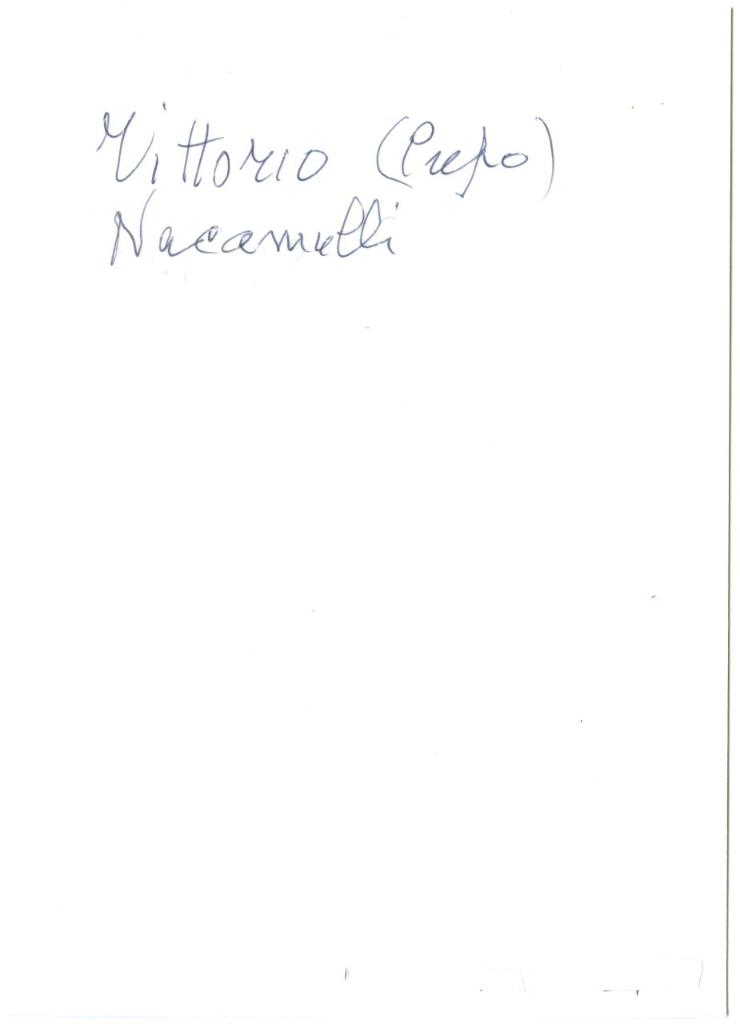 Vittorio (Pupo)
Nacamulli